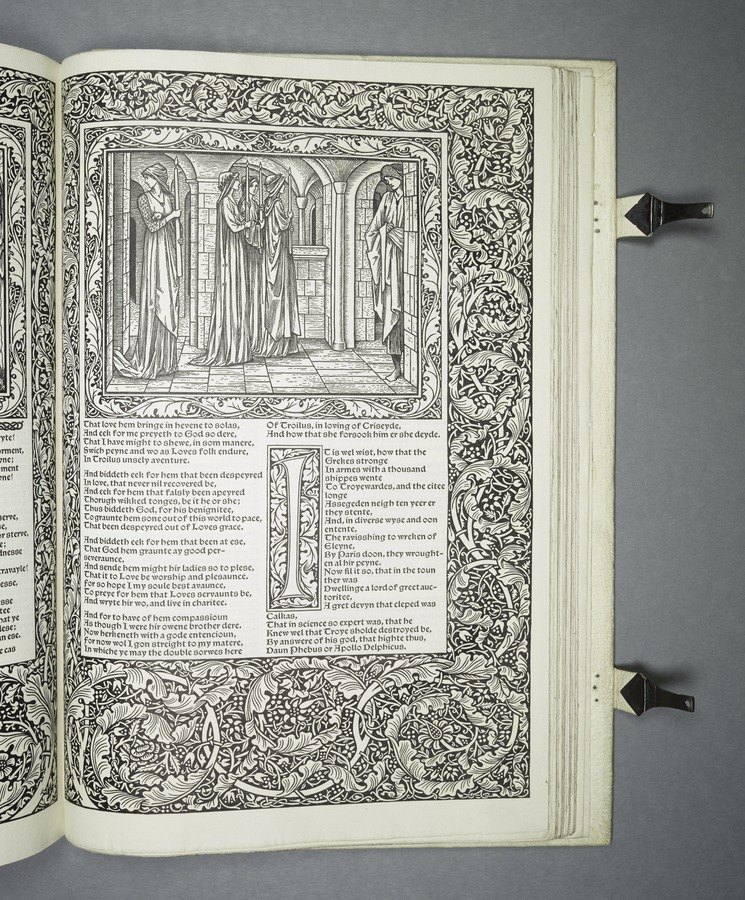 That love hem bringe in hevene to solas,
And eek for me preyeth to God so dere,
That I have might to shewe, in som manere,
Swich peyne and wo as Loves folk endure,
In Troilus unsely aventure.
And biddeth eek for hem that been despeyred
In love, that never nil recovered be,
And eek for hem that falsly been apeyred
Thorugh wikked tonges, be it he or she;
Thus biddeth God, for his benignitee,
To graunte hem sone out of this world to pace,
That been despeyred out of Loves grace.
And biddeth eek for hem that been at ese,
That God hem graunte ay good per-
severaunce,
And sende hem might hir ladies so to plese,
That it to Love be worship and plesaunce.
For so hope I my soule best avaunce,
To preye for hem that Loves servaunts be,
And wryte hir wo, and live in charitee.
And for to have of hem compassioun
As though I were hir owene brother dere.
Now herkeneth with a gode entencioun,
For now wol I gon streight to my matere,
In whiche ye may the double sorwes here
Of Troilus, in loving of Criseyde,
And how that she forsook him er she deyde.
IT is wel wist, how that the
Grekes stronge
In armes with a thousand
shippes wente
To Troyewardes, and the citee
longe
Assegeden neigh ten yeer er
they stente,
And, in diverse wyse and oon
entente,
The ravisshing to wreken of
Eleyne,
By Paris doon, they wroughten
al hir peyne.
Now fil it so, that in the toun
ther was
Dwellinge a lord of greet auc-
toritee,
A gret devyn that cleped was
Calkas,
That in science so expert was, that he
Knew wel that Troye sholde destroyed be,
By answere of his god, that highte thus,
Daun Phebus or Apollo Delphicus.